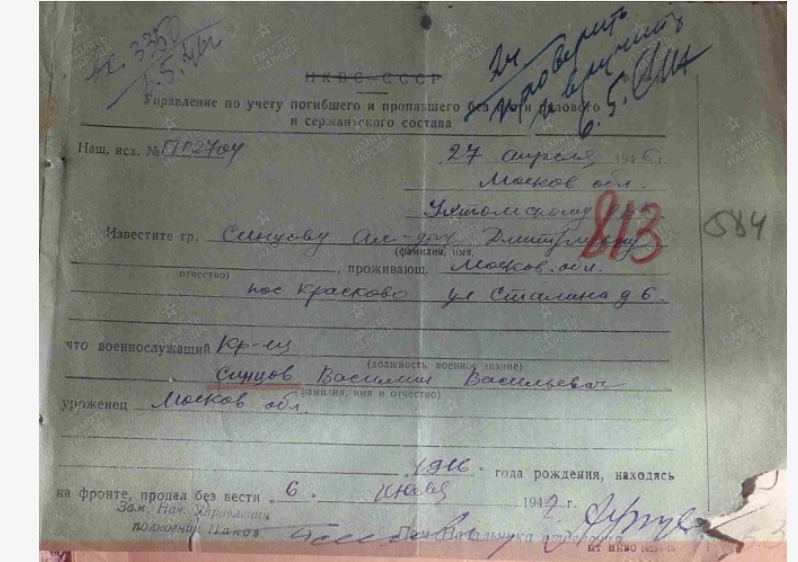 вх. 3350
6.5.46г
НКВС СССР
проверить
и вручить
6.5.
Управление по учету погибшего и пропавшего без вести рядового
и сержантского состава
Наш. исх. №
27 апреля 1946 г.
Москов обл.
Ухтомскому
813
584
Известите гр. Синцову Ал-дру Дмитриевичу
(фамилия, имя,
отчество)
, проживающ. Москов. обл.
пос Красково ул Сталина д 6.
что военнослужащий Кр-ец
(должность, военное звание)
Синцов Василий Васильевич
(фамилия, имя и отчество)
уроженец Москов обл.
1916 года рождения, находясь
на фронте, пропал без вести „ 6. июля 1942 г.
Зам. Нач. Управления
полковник Панов
Начальника отделения